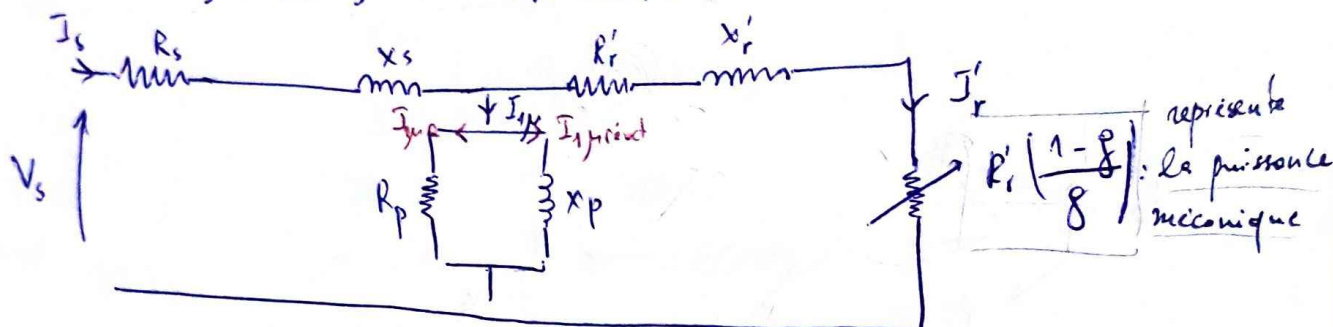 I_s R_s x_s R'_r x'_r
I_1μ
I_μr I_1μréact
I'_r
V_s
R_p x_p
R'_r (1-g/g) : représente la puissance mécanique